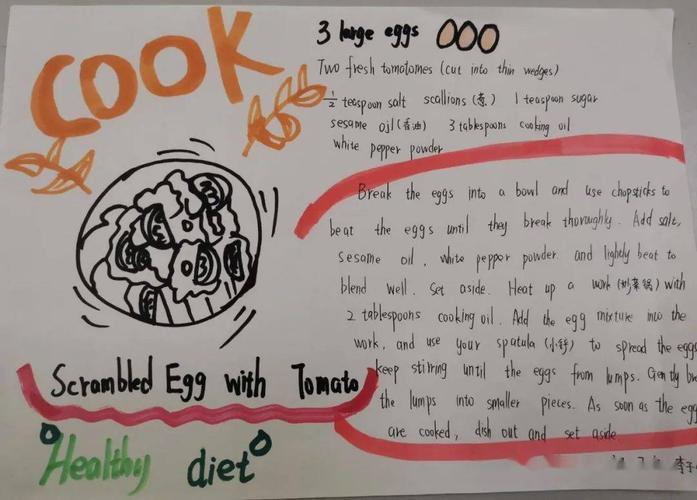 COOK
3 large eggs
Two fresh tomatomes (cut into thin wedges)
1/2 teaspoon salt scallions (葱) 1 teaspoon sugar
sesame oil (香油) 3 tablespoons cooking oil
white pepper powder
Break the eggs into a bowl and use chopsticks to
beat the eggs until they break thoroughly. Add salt,
sesame oil, white pepper powder. and lightly beat to
blend well. Set aside. Heat up a work (炒菜锅) with
2 tablespoons cooking oil. Add the egg mixture into the
work, and use your spatula (小铲) to spread the eggs
keep stirring until the eggs from lumps. Gently
the lumps into smaller pieces. As soon as the egg
are cooked, dish out and set aside
Scrambled Egg with Tomato
Healthy diet
李子